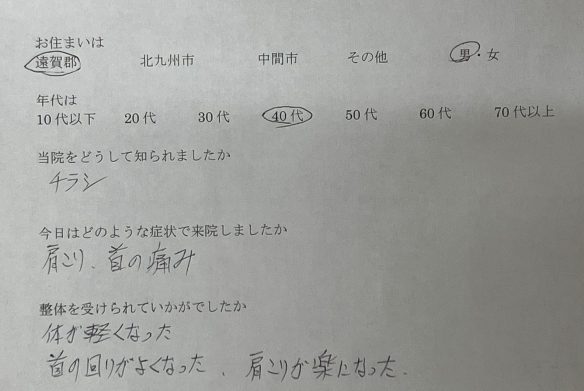 お住まいは
遠賀郡 北九州市 中間市 その他 男・女
年代は
10代以下 20代 30代 40代 50代 60代 70代以上
当院をどうして知られましたか
チラシ
今日はどのような症状で来院しましたか
肩こり、首の痛み
整体を受けられていかがでしたか
体が軽くなった
首の回りがよくなった、肩こりが楽になった.